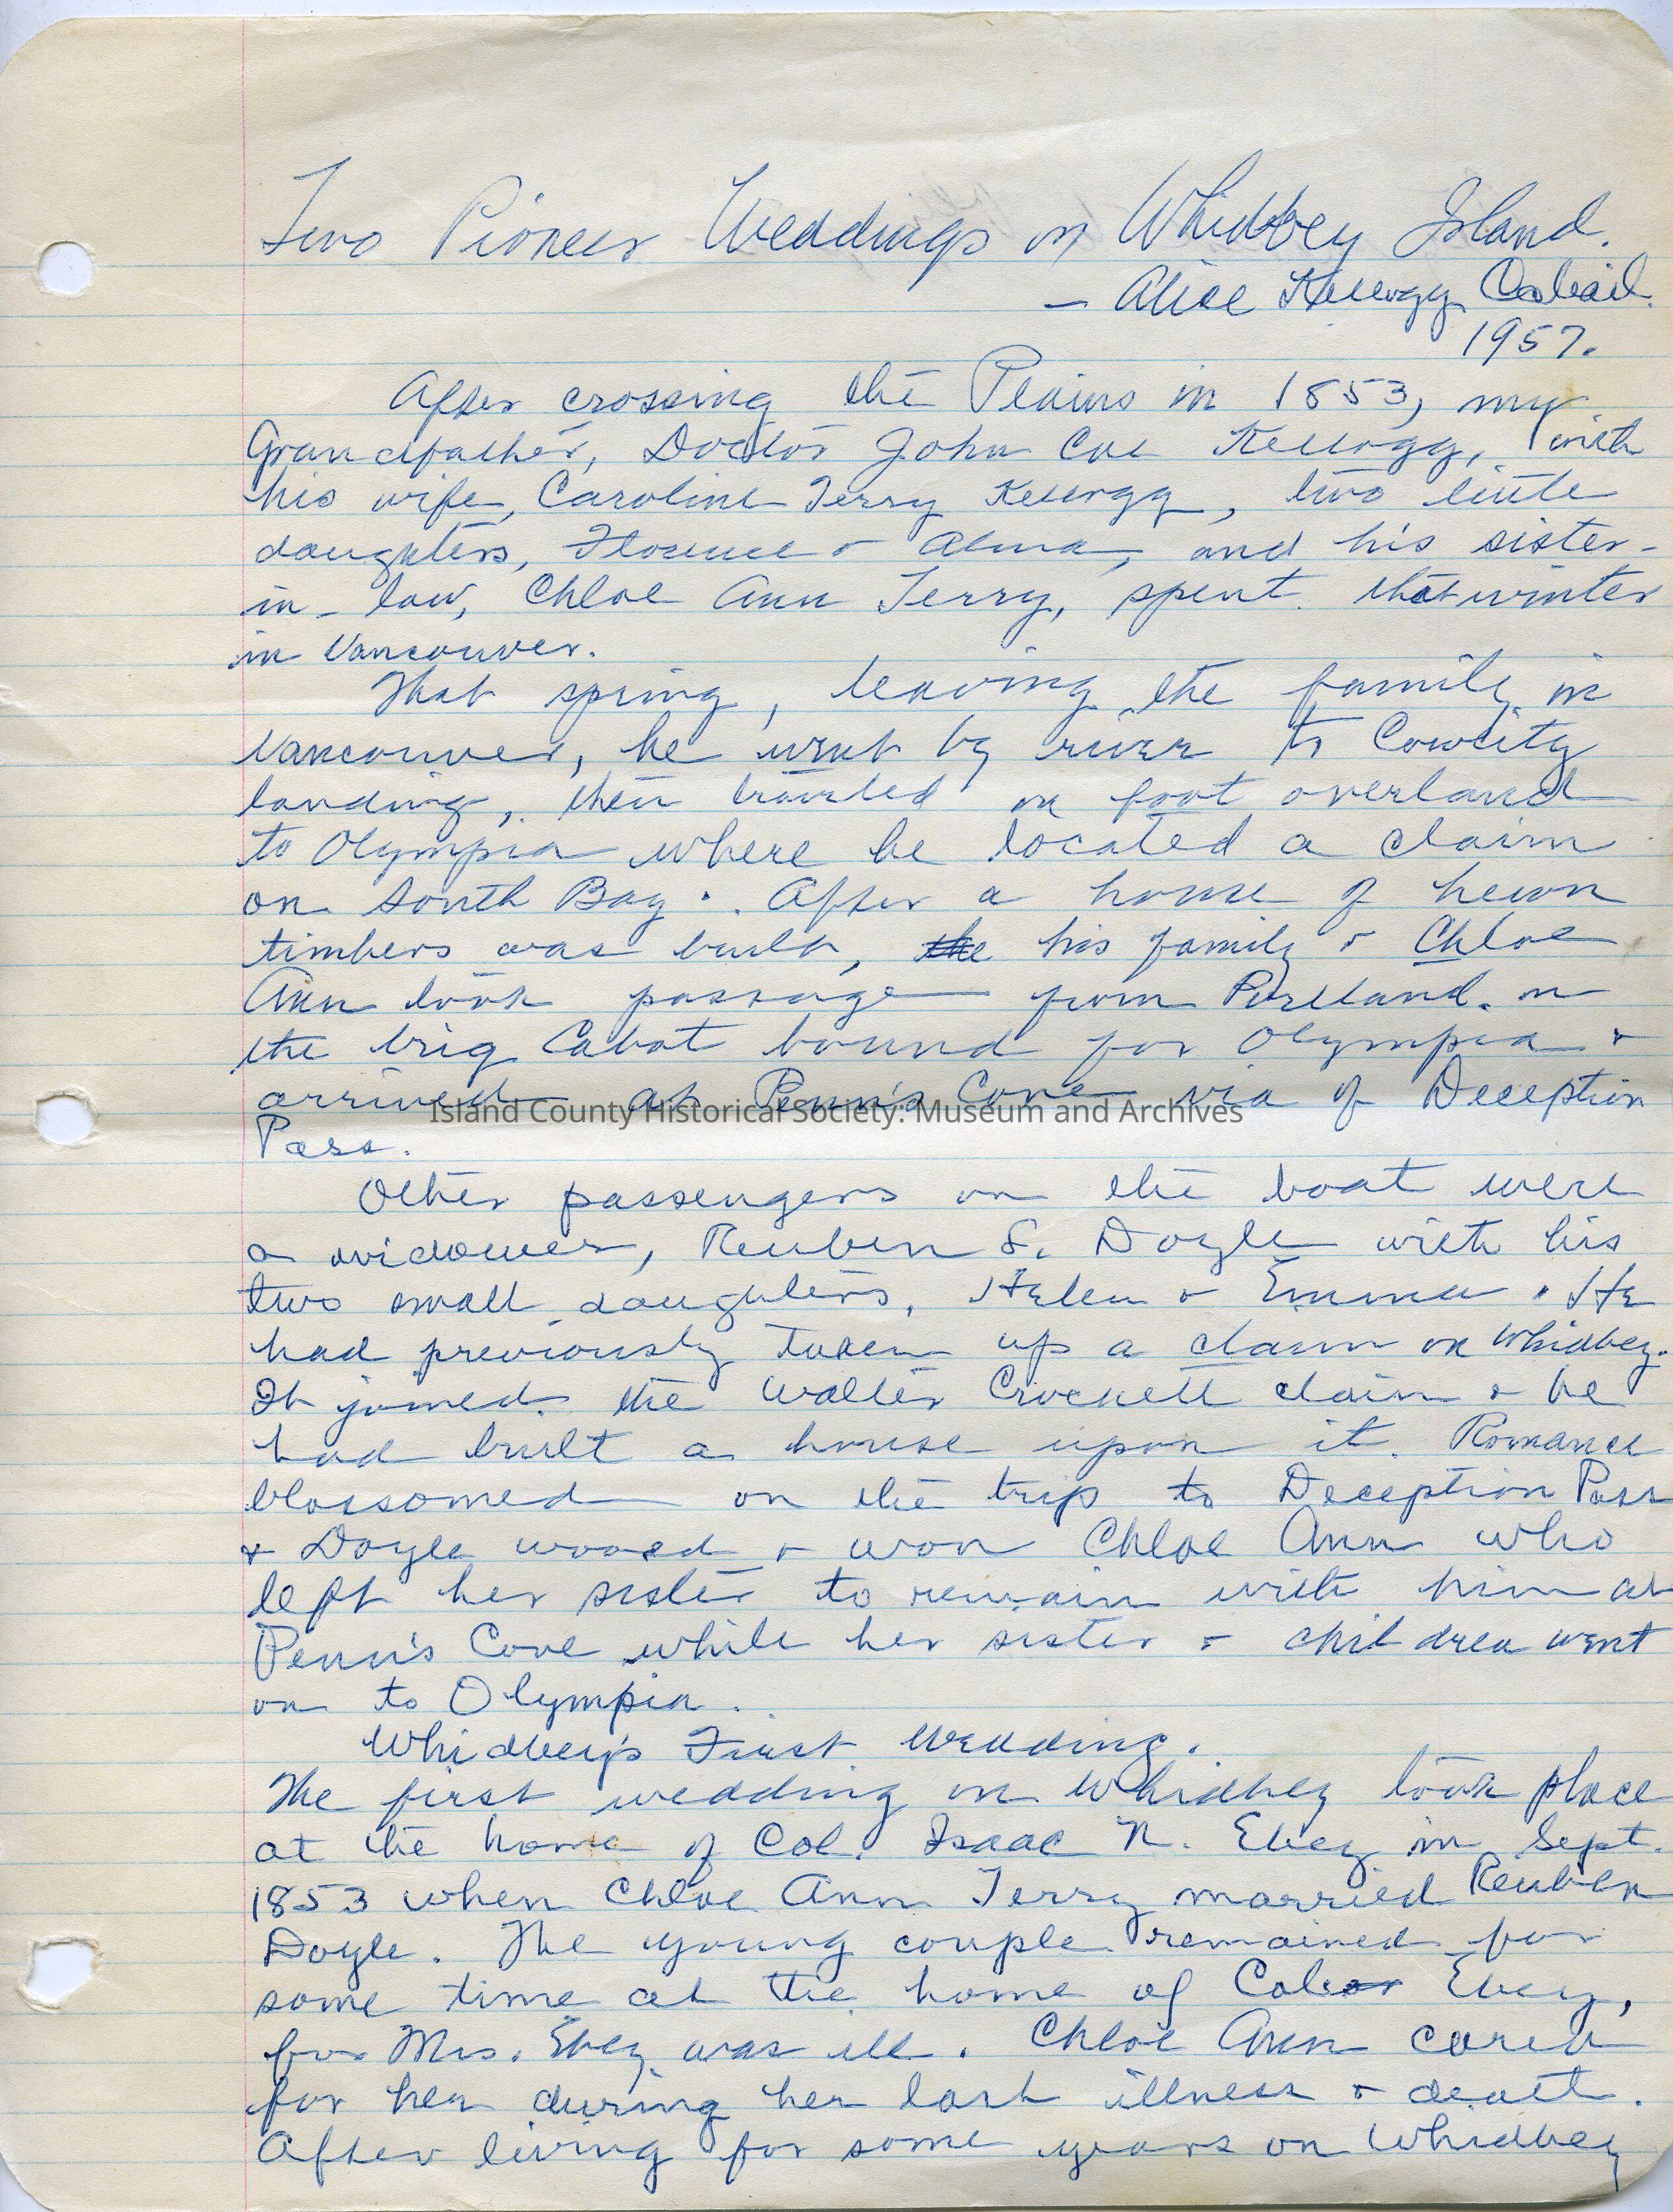 Two Pioneer Weddings on Whidbey Island.
- Alice Kellogg Cahail.
1957.
After crossing the Plains in 1853, my
Grandfather, Doctor John Coe Kellogg, with
his wife, Caroline Terry Kellogg, two little
daughters, Florence & Alma, and his sister-
in-law, Chloe Ann Terry, spent that winter
in Vancouver.
That spring, leaving the family in
Vancouver, he went by river to Cowlitz
landing, then traveled on foot overland
to Olympia where he located a claim
on South Bay. After a house of hewn
timbers was built, the his family & Chloe
Ann took passage from Portland on
the brig Cabot bound for Olympia &
arrived at Penn's Cove via of Deception
Pass.
Island County Historical Society: Museum and Archives
Other passengers on the boat were
a widower, Reuben S. Doyle with his
two small daughters, Helen & Emma. He
had previously taken up a claim on Whidbey.
It joined the Walter Crockett claim & he
had built a house upon it. Romance
blossomed on the trip to Deception Pass
& Doyle wooed & won Chloe Ann who
left her sister to remain with him at
Penn's Cove while her sister & children went
on to Olympia.
Whidbey's First Wedding.
The first wedding on Whidbey took place
at the home of Col. Isaac N. Ebey in Sept.
1853 when Chloe Ann Terry married Reuben
Doyle. The young couple remained for
some time at the home of Col Ebey,
for Mrs. Ebey was ill. Chloe Ann cared
for her during her last illness & death.
After living for some years on Whidbey